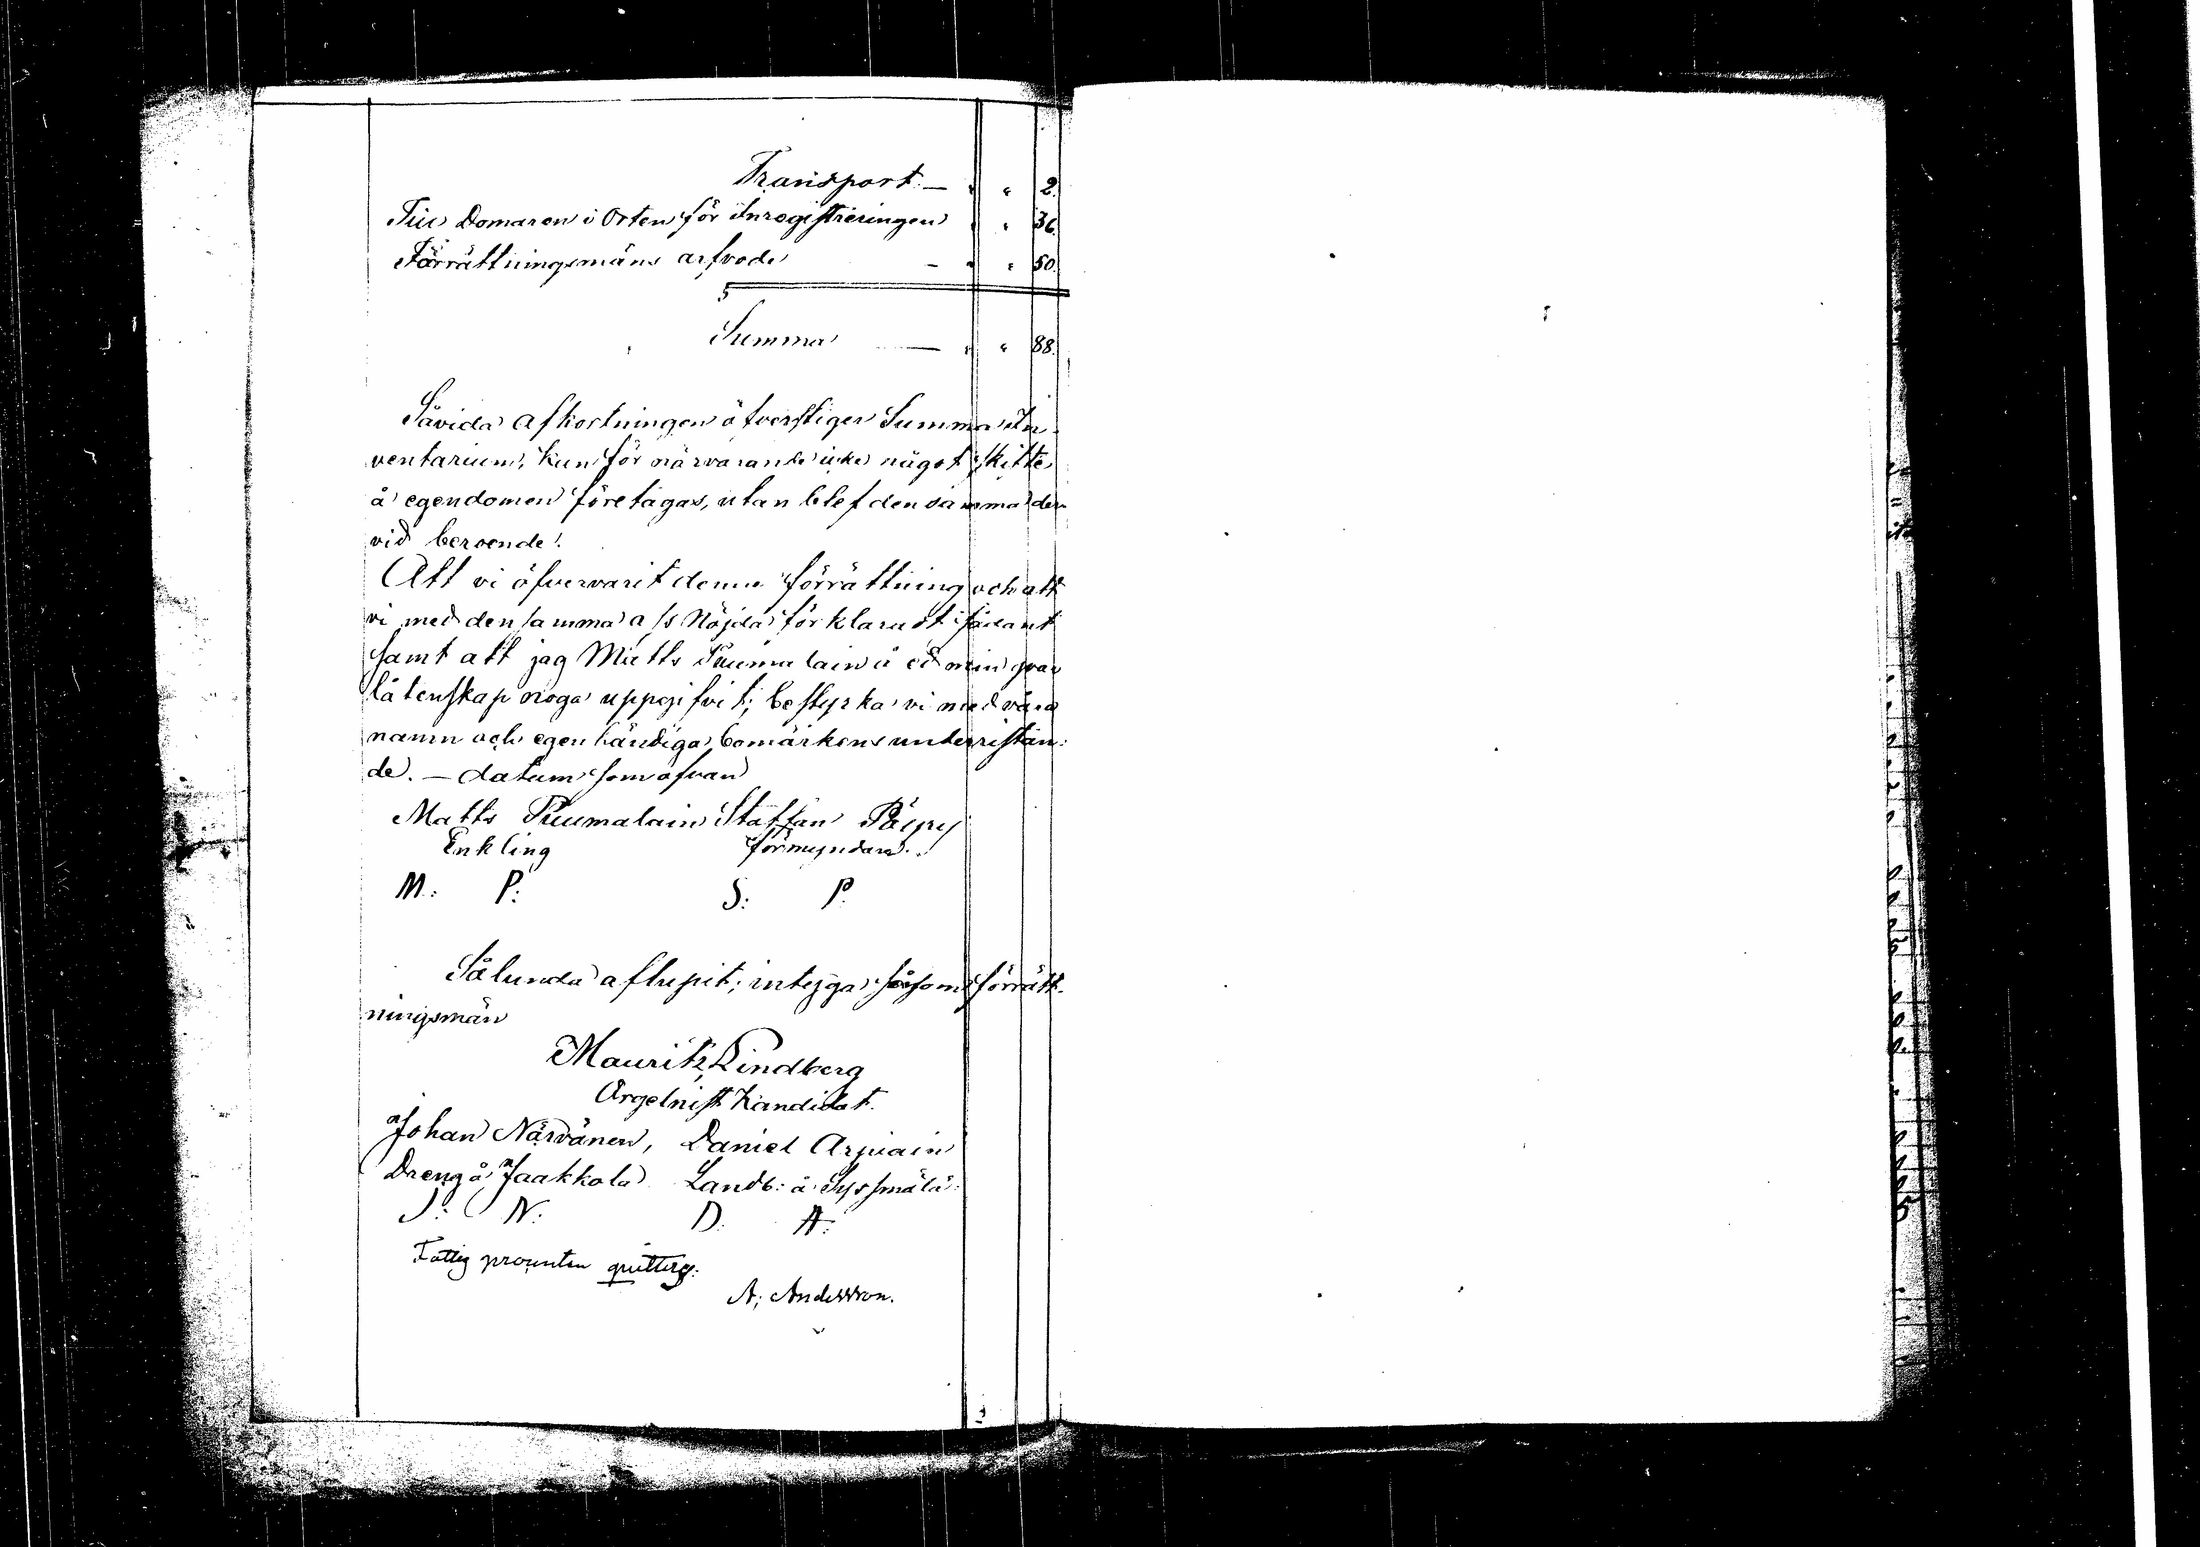 Transport. — " " 2.
Till Domaren i Orten för Inregistreringen " " 36.
Förrättningsmäns arfvode — " " 50.
Summa — " " 88.
Såvida afkortningen öfverstiger Summa In-
ventarium, kun för närvarande icke något skifte
å egendomen företagas, utan blef den samma der
vid beroende.
Att vi öfvervarit denna förrättning och att
vi med den samma oss Nöjda förklarat
samt att jag Matts Puumalain å ed min qvar
låtenskap noga uppgifvit; bestyrka vi med våra
namn och egenhändiga bomärkens underristan:
de. — datum som ofvan
Matts Puumalain Staffan Päipy
Enkling förmyndare.
M: P: S: P.
Sålunda aflupit; intyga såsom förrätt-
ningsmän
Mauritz Lindberg
Orgelnist Kandidat.
Johan Närvänen, Daniel Arpiain
Dreng å Jaakkola Landb: å Syssmälä:
J: N: D: A:
Fattig procenten qvitteras:
A; Andersson.